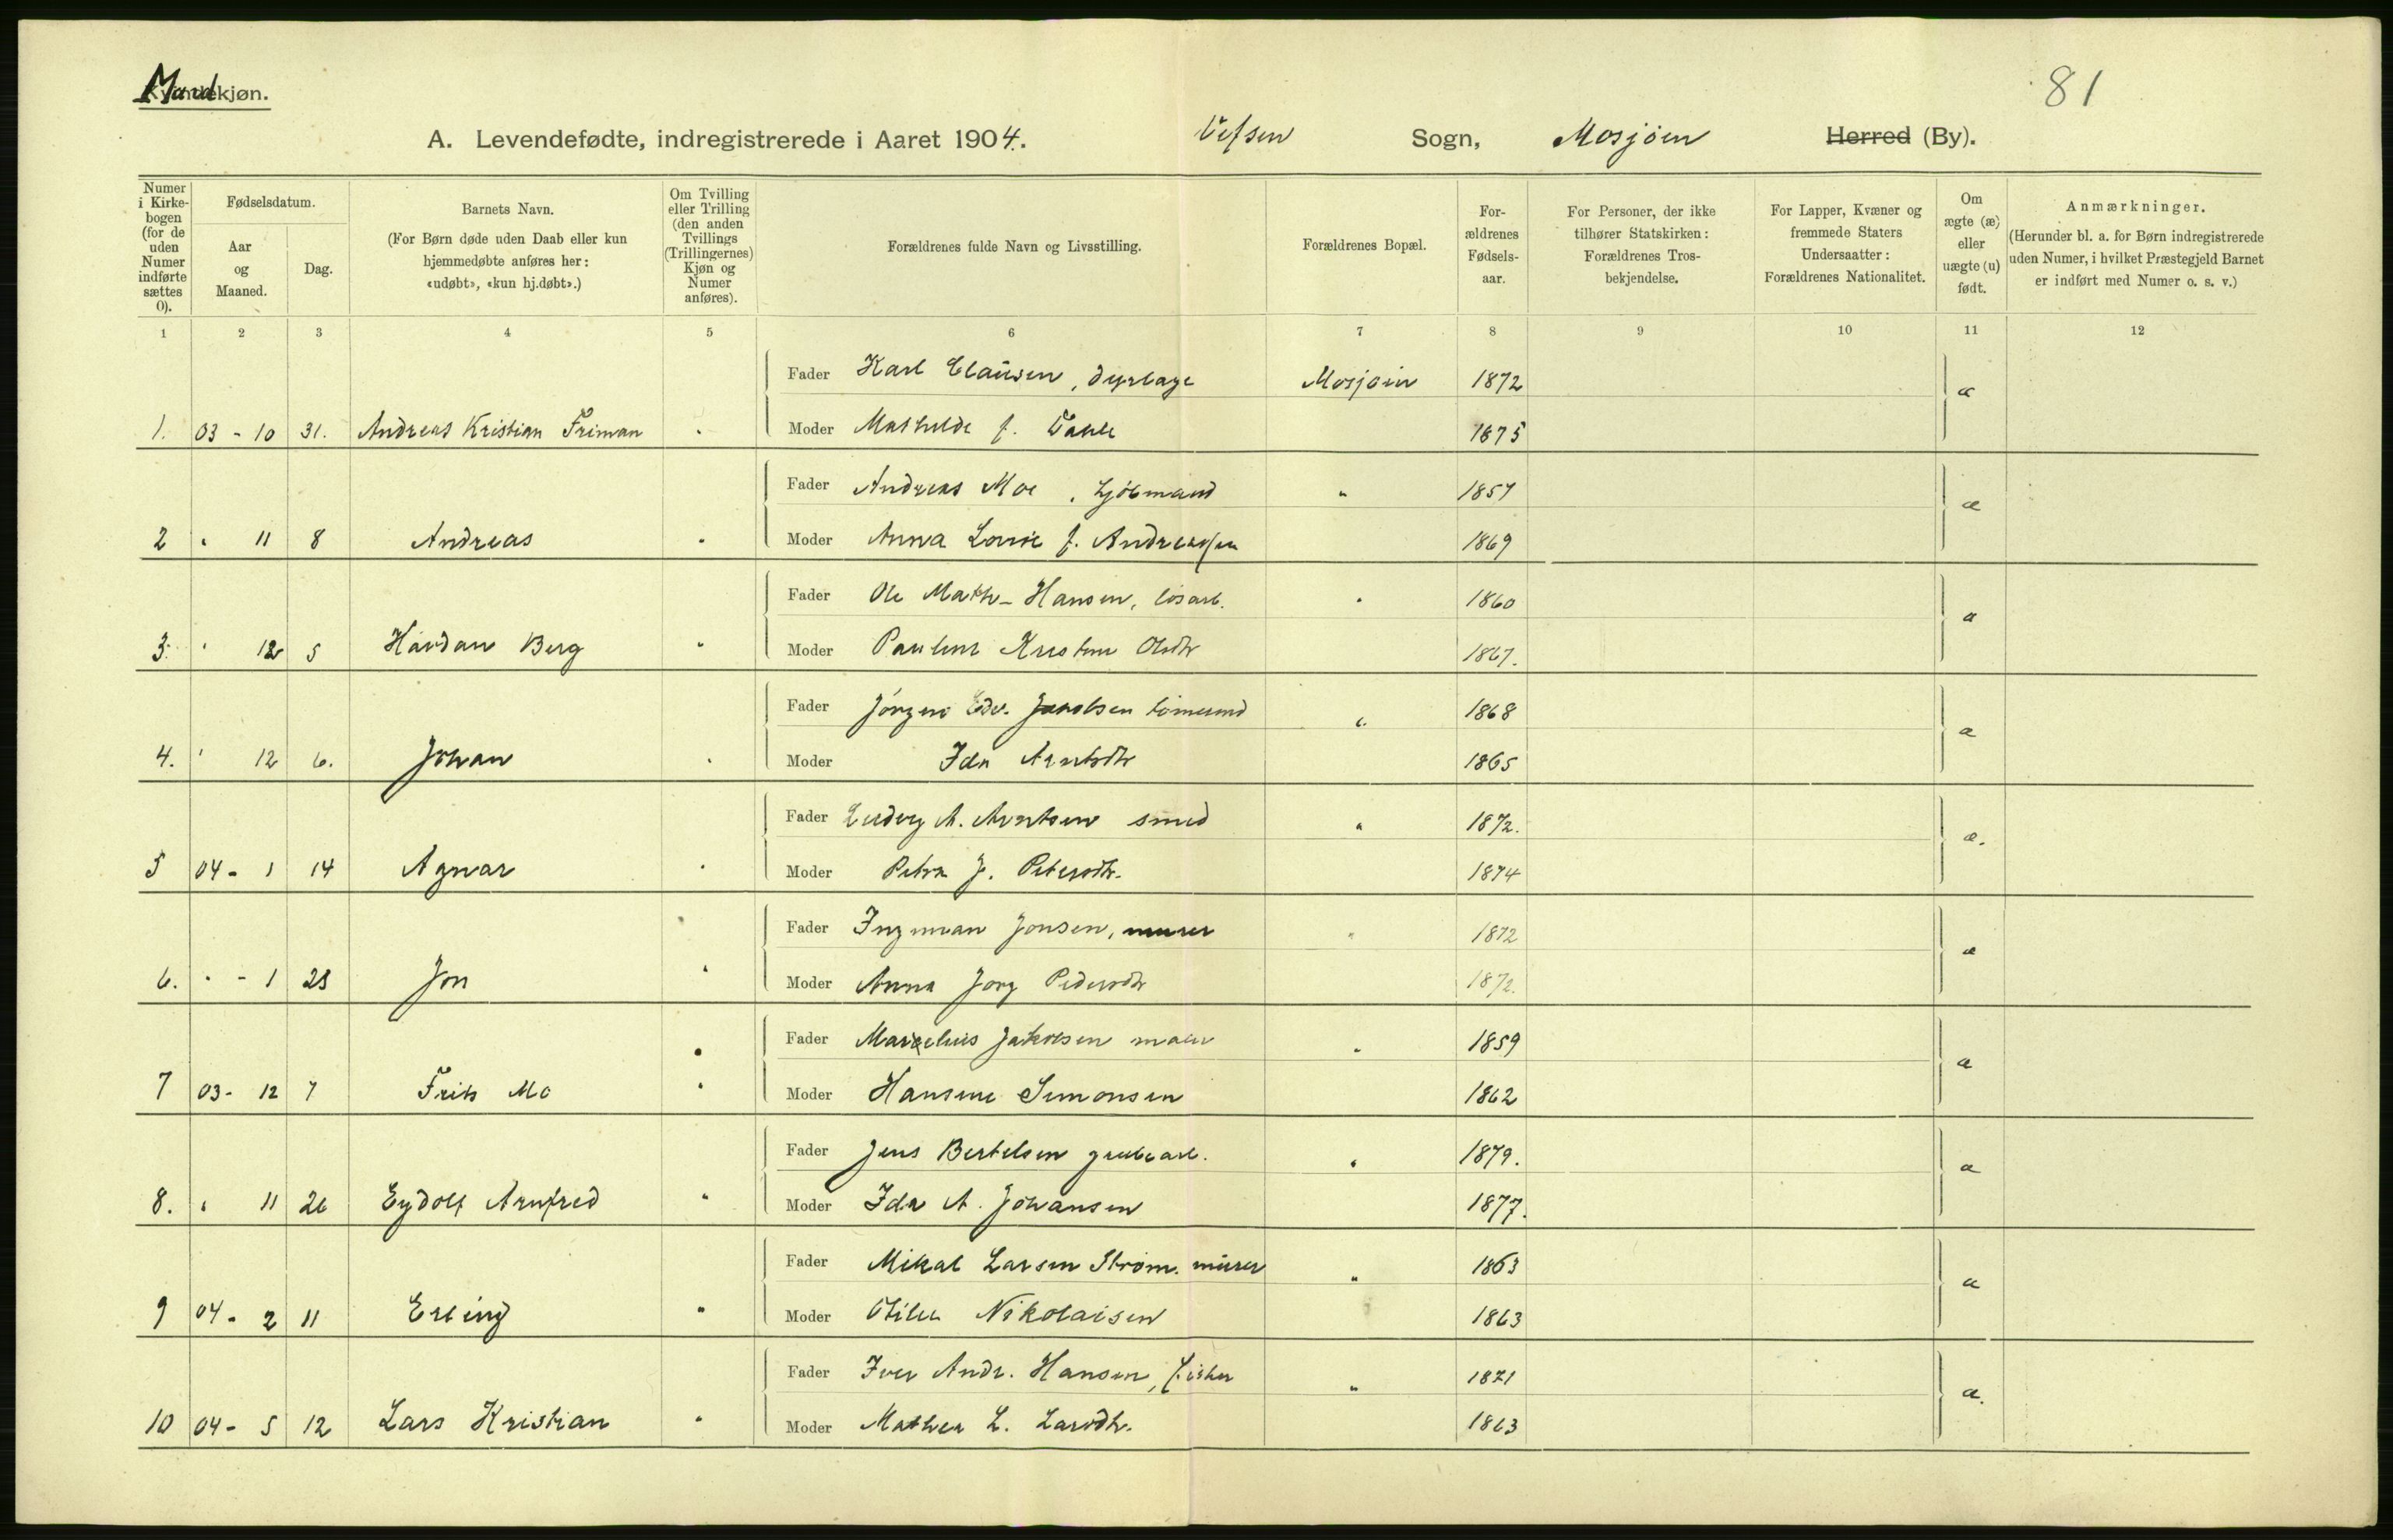 81
Mandkjøn.
A. Levendefødte, indregistrerede i Aaret 1904. Vefsen Sogn, Mosjøen Herred (By).
Numer i Kirkebogen (for de uden Numer indførte sættes 0).
Fødselsdatum.
Aar og Maaned.
Dag.
Barnets Navn.
(For Børn døde uden Daab eller kun hjemmedøbte anføres her: «udøbt», «kun hj.døbt».)
Om Tvilling eller Trilling (den anden Tvillings (Trillingernes) Kjøn og Numer anføres).
Forældrenes fulde Navn og Livsstilling.
Forældrenes Bopæl.
Forældrenes Fødselsaar.
For Personer, der ikke tilhører Statskirken: Forældrenes Trosbekjendelse.
For Lapper, Kvæner og fremmede Staters Undersaatter: Forældrenes Nationalitet.
Om ægte (æ) eller uægte (u) født.
Anmærkninger.
(Herunder bl. a. for Børn indregistrerede uden Numer, i hvilket Præstegjeld Barnet er indført med Numer o. s. v.)
1 2 3 4 5 6 7 8 9 10 11 12
Fader Karl Clausen, dyrlæge Mosjøen 1872 æ
1. 03 - 10 31. Andreas Kristian Friman Moder Mathilde f. 1875
Fader Andreas Moe, kjøbmand " 1857 æ
2 " 11 8 Andreas " Moder Anna Lovise f. Andreassen 1869
Fader Ole Math- Hansen, løsarb. " 1860 æ
3. " 12 5 Havdan Berg " Moder Pauline Kristine Olsdtr 1867.
Fader Jørgen Edv. Jakobsen tømmermd " 1868 æ
4. " 12 6. Johan " Moder Ida Arntsdtr 1865
Fader Ludvig A. Arntsen smed " 1872. æ.
5 04 - 1 14 Agnar " Moder Petra J. Petersdtr. 1874
Fader Ingman Jonsen, murer " 1872 æ
6. " - 1 28 Jon " Moder Anna Jørg Pedersdtr 1872.
Fader Marselius Jakobsen maler " 1859 æ
7 03 - 12 7 Frits Mo " Moder Hansine Simonsen 1862
Fader Jens Bertelsen grubearb. " 1879. æ
8. " 11 26 Eydolf Arnfred " Moder Ida A. Johansen 1877.
Fader Mikal Larsen Strøm. murer " 1863 æ
9 04 - 2 11 Erling " Moder Otilie Nikolaisen 1863
Fader Iver Andr. Hansen, fisker " 1871 æ.
10 04 - 5 12 Lars Kristian " Moder Mathea L. Larsdtr. 1863